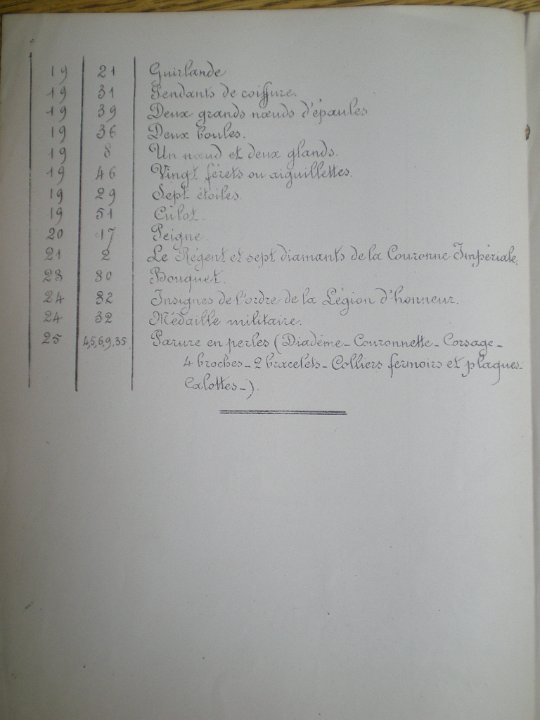 19 21 Guirlande
19 31 Pendants de coiffure.
19 39 Deux grands nœuds d'épaules
19 36 Deux boules.
19 8 Un nœud et deux glands.
19 46 Vingt férets ou aiguillettes.
19 29 Sept étoiles.
19 51 Culot.
20 17 Peigne.
21 2 Le Régent et sept diamants de la Couronne Impériale.
23 30 Bouquet.
24 32 Insignes de l'ordre de la Légion d'honneur.
24 32 Médaille militaire.
25 4,5,6,9,35 Parure en perles (Diadème - Couronnette - Corsage -
4 broches - 2 bracelets - Colliers fermoirs et plaques -
Calottes -).